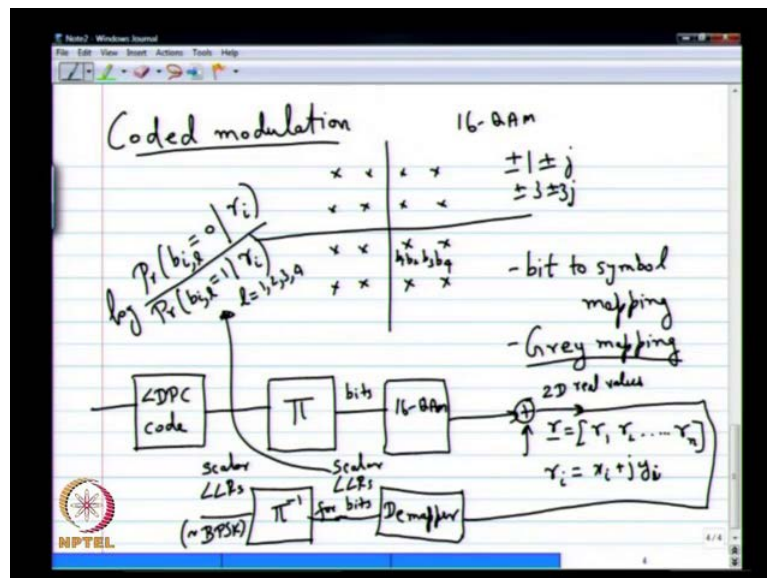 Note2 - Windows Journal
File Edit View Insert Actions Tools Help
Coded modulation
16-QAM
±1±j
±3±3j
log Pr(bi,l=0|ri) / Pr(bi,l=1|ri)
l=1,2,3,4
b1b2b3b4
- bit to symbol
mapping
- Grey mapping
LDPC
code
Π
bits
16-QAM
+
2D real values
r=[r1 r2 .... rn]
ri = xi + jyi
scalar
LLRs
(~BPSK)
Π^-1
scalar
LLRs
for bits
Demapper
NPTEL
4/4
4